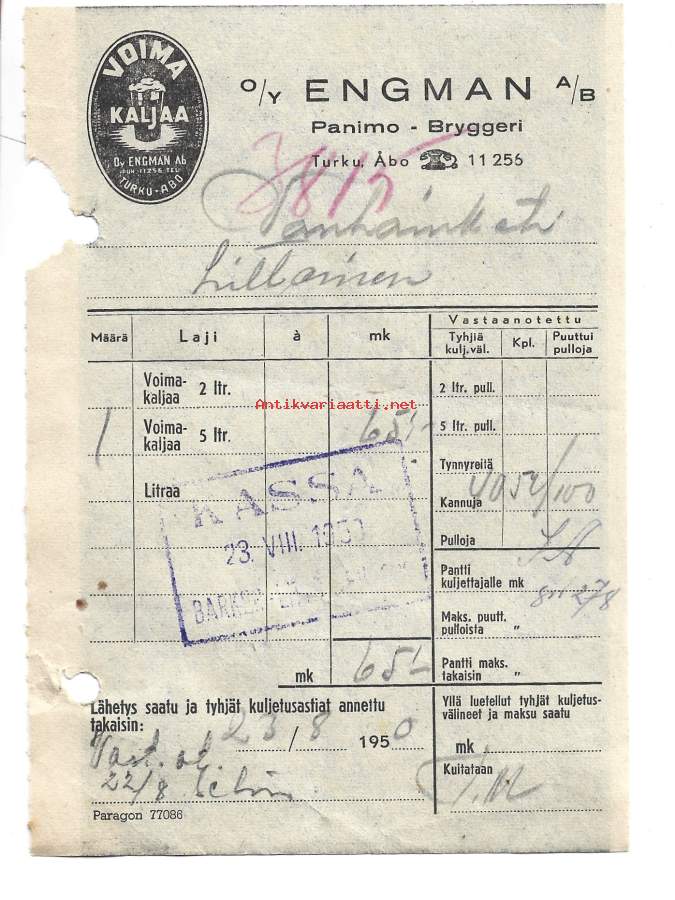 VOIMA
KALJAA
Oy ENGMAN Ab
PUH. 11256 TEL.
TURKU-ÅBO
O/Y ENGMAN A/B
Panimo - Bryggeri
Turku, Åbo 11 256
Määrä Laji à mk
Vastaanotettu
Tyhjiä kulj.väl. Kpl. Puuttui pulloja
Voima-kaljaa 2 ltr.
2 ltr. pull.
Antikvariaatti.net
1 Voima-kaljaa 5 ltr. 65:-
5 ltr. pull.
Tynnyreitä
Litraa
Kannuja
KASSA
23. VIII. 1950
Pulloja
Pantti kuljettajalle mk
Maks. puutt. pulloista "
mk 65:-
Pantti maks. takaisin "
Lähetys saatu ja tyhjät kuljetusastiat annettu
takaisin: 23/8 1950
Yllä luetellut tyhjät kuljetus-
välineet ja maksu saatu
mk
Kuitataan
22/8
Paragon 77086